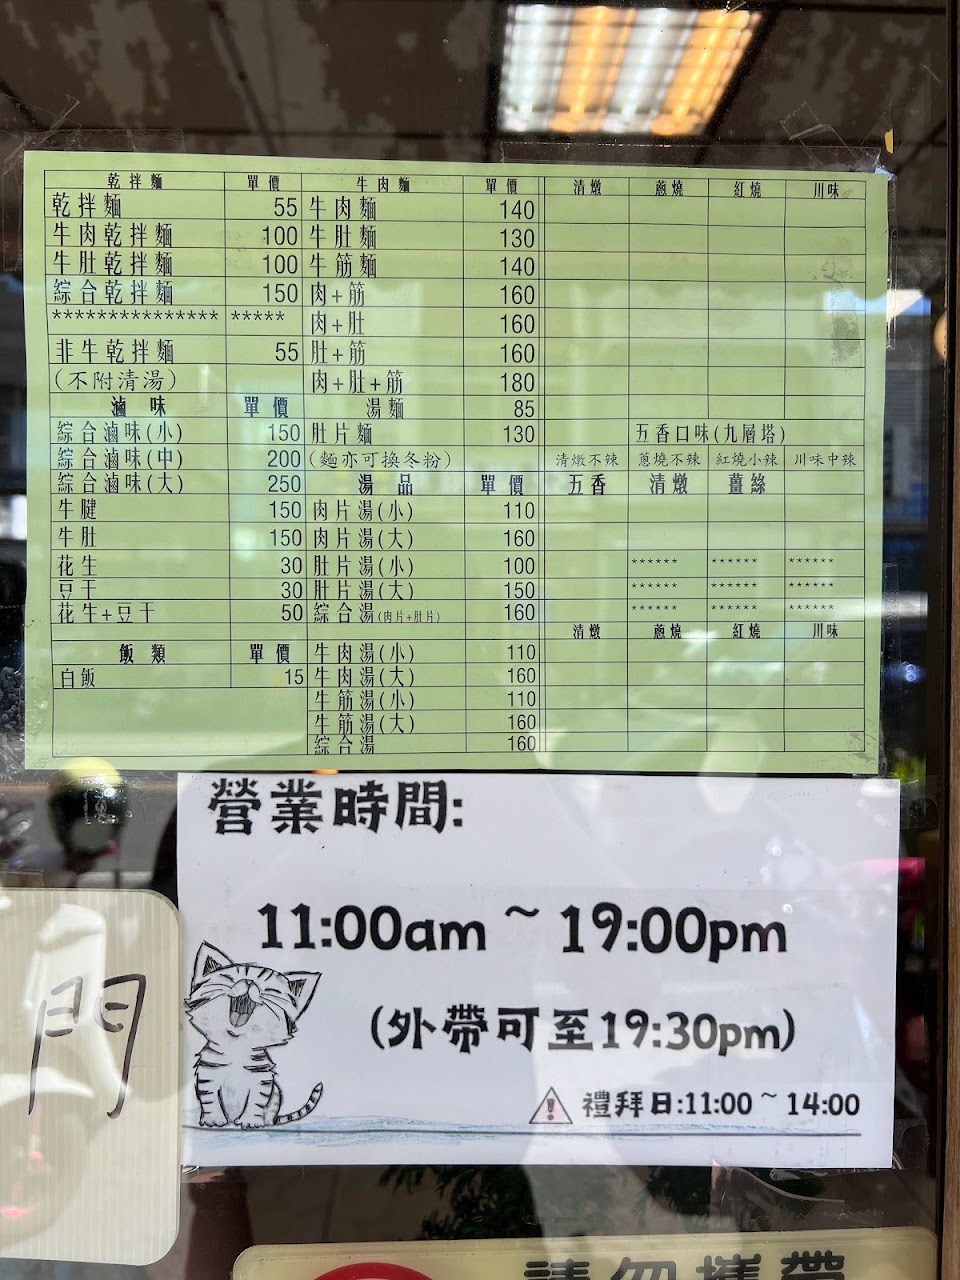 乾拌麵 單價 牛肉麵 單價 清燉 蔥燒 紅燒 川味
乾拌麵 55 牛肉麵 140
牛肉乾拌麵 100 牛肚麵 130
牛肚乾拌麵 100 牛筋麵 140
綜合乾拌麵 150 肉+筋 160
*************** ***** 肉+肚 160
非牛乾拌麵 55 肚+筋 160
(不附清湯) 肉+肚+筋 180
滷味 單價 湯麵 85
綜合滷味(小) 150 肚片麵 130 五香口味(九層塔)
綜合滷味(中) 200 (麵亦可換冬粉) 清燉不辣 蔥燒不辣 紅燒小辣 川味中辣
綜合滷味(大) 250 湯品 單價 五香 清燉 薑絲
牛腱 150 肉片湯(小) 110
牛肚 150 肉片湯(大) 160
花生 30 肚片湯(小) 100 ****** ****** ******
豆干 30 肚片湯(大) 150 ****** ****** ******
花生+豆干 50 綜合湯(肉片+肚片) 160 ****** ****** ******
清燉 蔥燒 紅燒 川味
飯類 單價 牛肉湯(小) 110
白飯 15 牛肉湯(大) 160
牛筋湯(小) 110
牛筋湯(大) 160
綜合湯 160
營業時間:
11:00am ~ 19:00pm
(外帶可至19:30pm)
禮拜日:11:00 ~ 14:00
門
請勿攜帶